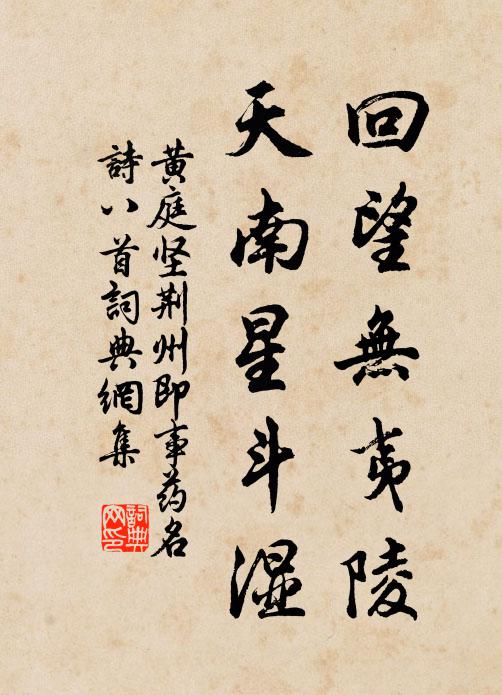 回望無夷陵
天南星斗濕
黃庭坚荆州即事药名
詩八首詞典網集
詞典
网印